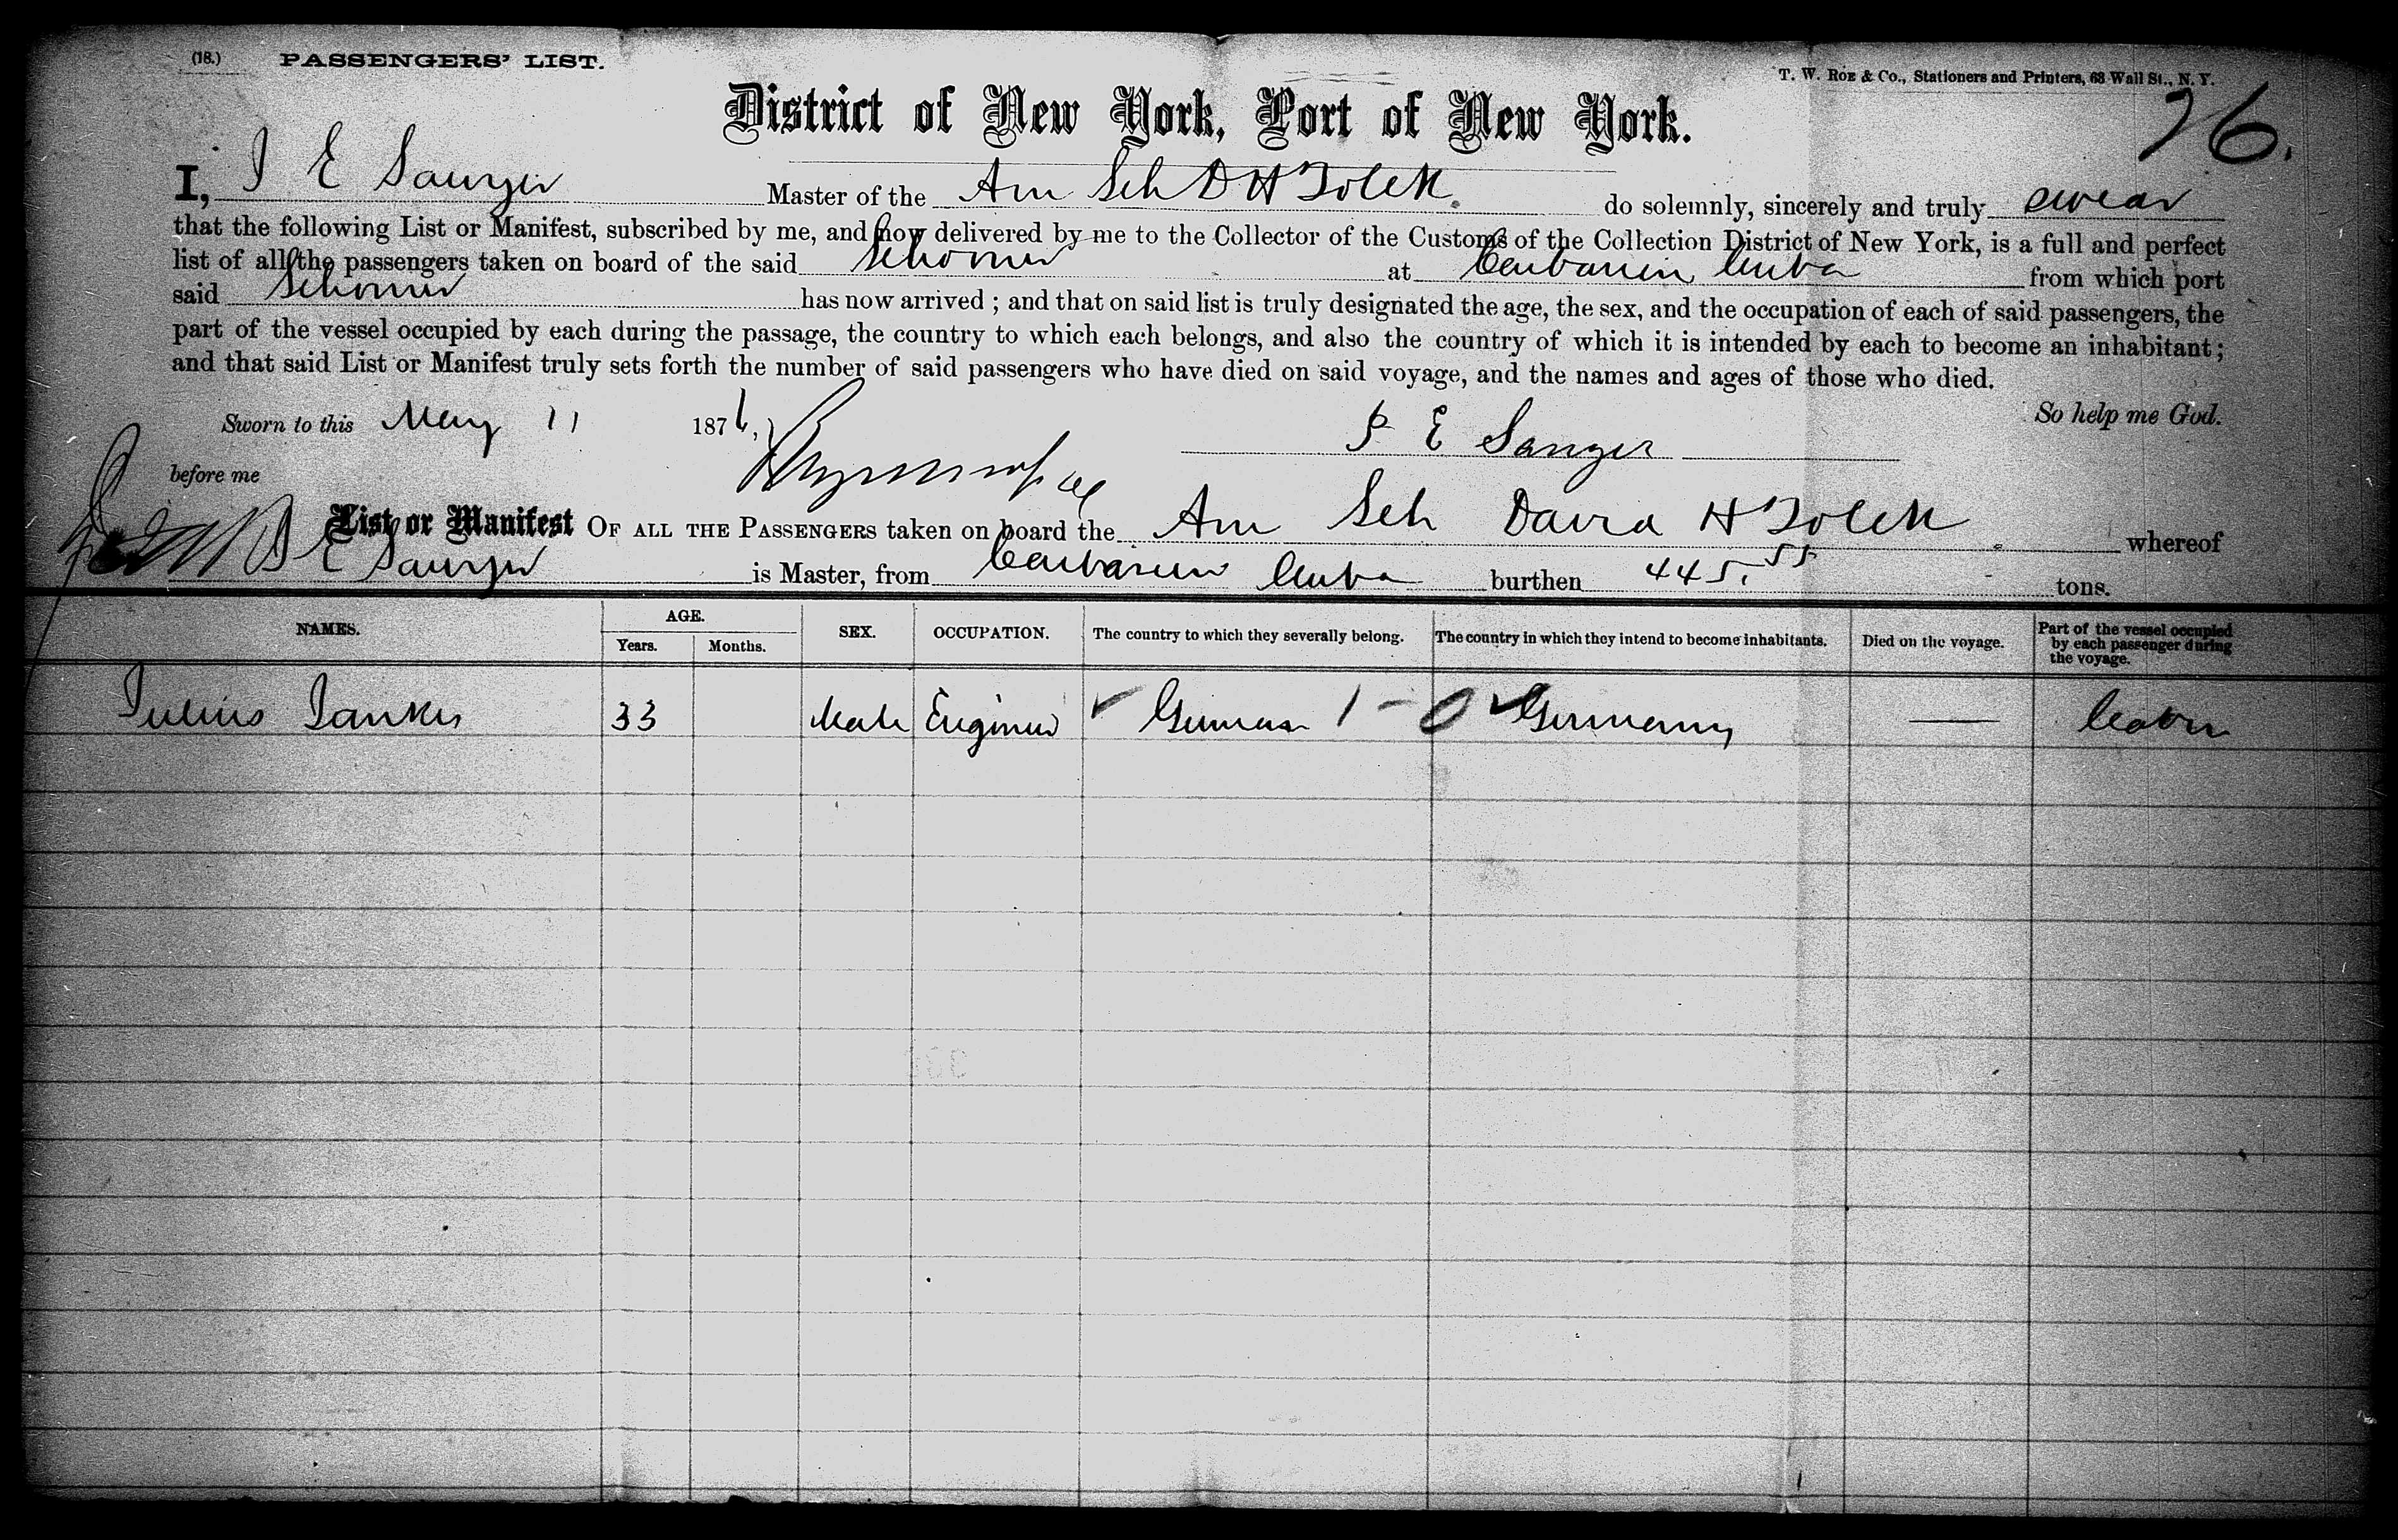 (18.) PASSENGERS' LIST.
T. W. Roe & Co., Stationers and Printers, 68 Wall St., N. Y.
76.
District of New York, Port of New York.
I, E Sawyer Master of the Am Sch D H Tolck. do solemnly, sincerely and truly swear
that the following List or Manifest, subscribed by me, and now delivered by me to the Collector of the Customs of the Collection District of New York, is a full and perfect
list of all the passengers taken on board of the said Schooner at Caibarien Cuba from which port
said Schooner has now arrived ; and that on said list is truly designated the age, the sex, and the occupation of each of said passengers, the
part of the vessel occupied by each during the passage, the country to which each belongs, and also the country of which it is intended by each to become an inhabitant ;
and that said List or Manifest truly sets forth the number of said passengers who have died on said voyage, and the names and ages of those who died.
So help me God.
Sworn to this May 11 1876,
E Sawyer
before me
List or Manifest OF ALL THE PASSENGERS taken on board the Am Sch David H Tolck whereof
E Sawyer is Master, from Caibarien Cuba burthen 445.55 tons.
NAMES. AGE. Years. Months. SEX. OCCUPATION. The country to which they severally belong. The country in which they intend to become inhabitants. Died on the voyage. Part of the vessel occupied by each passenger during the voyage.
Julius 33 Male Engineer German 1 - 0 Germany — Cabin